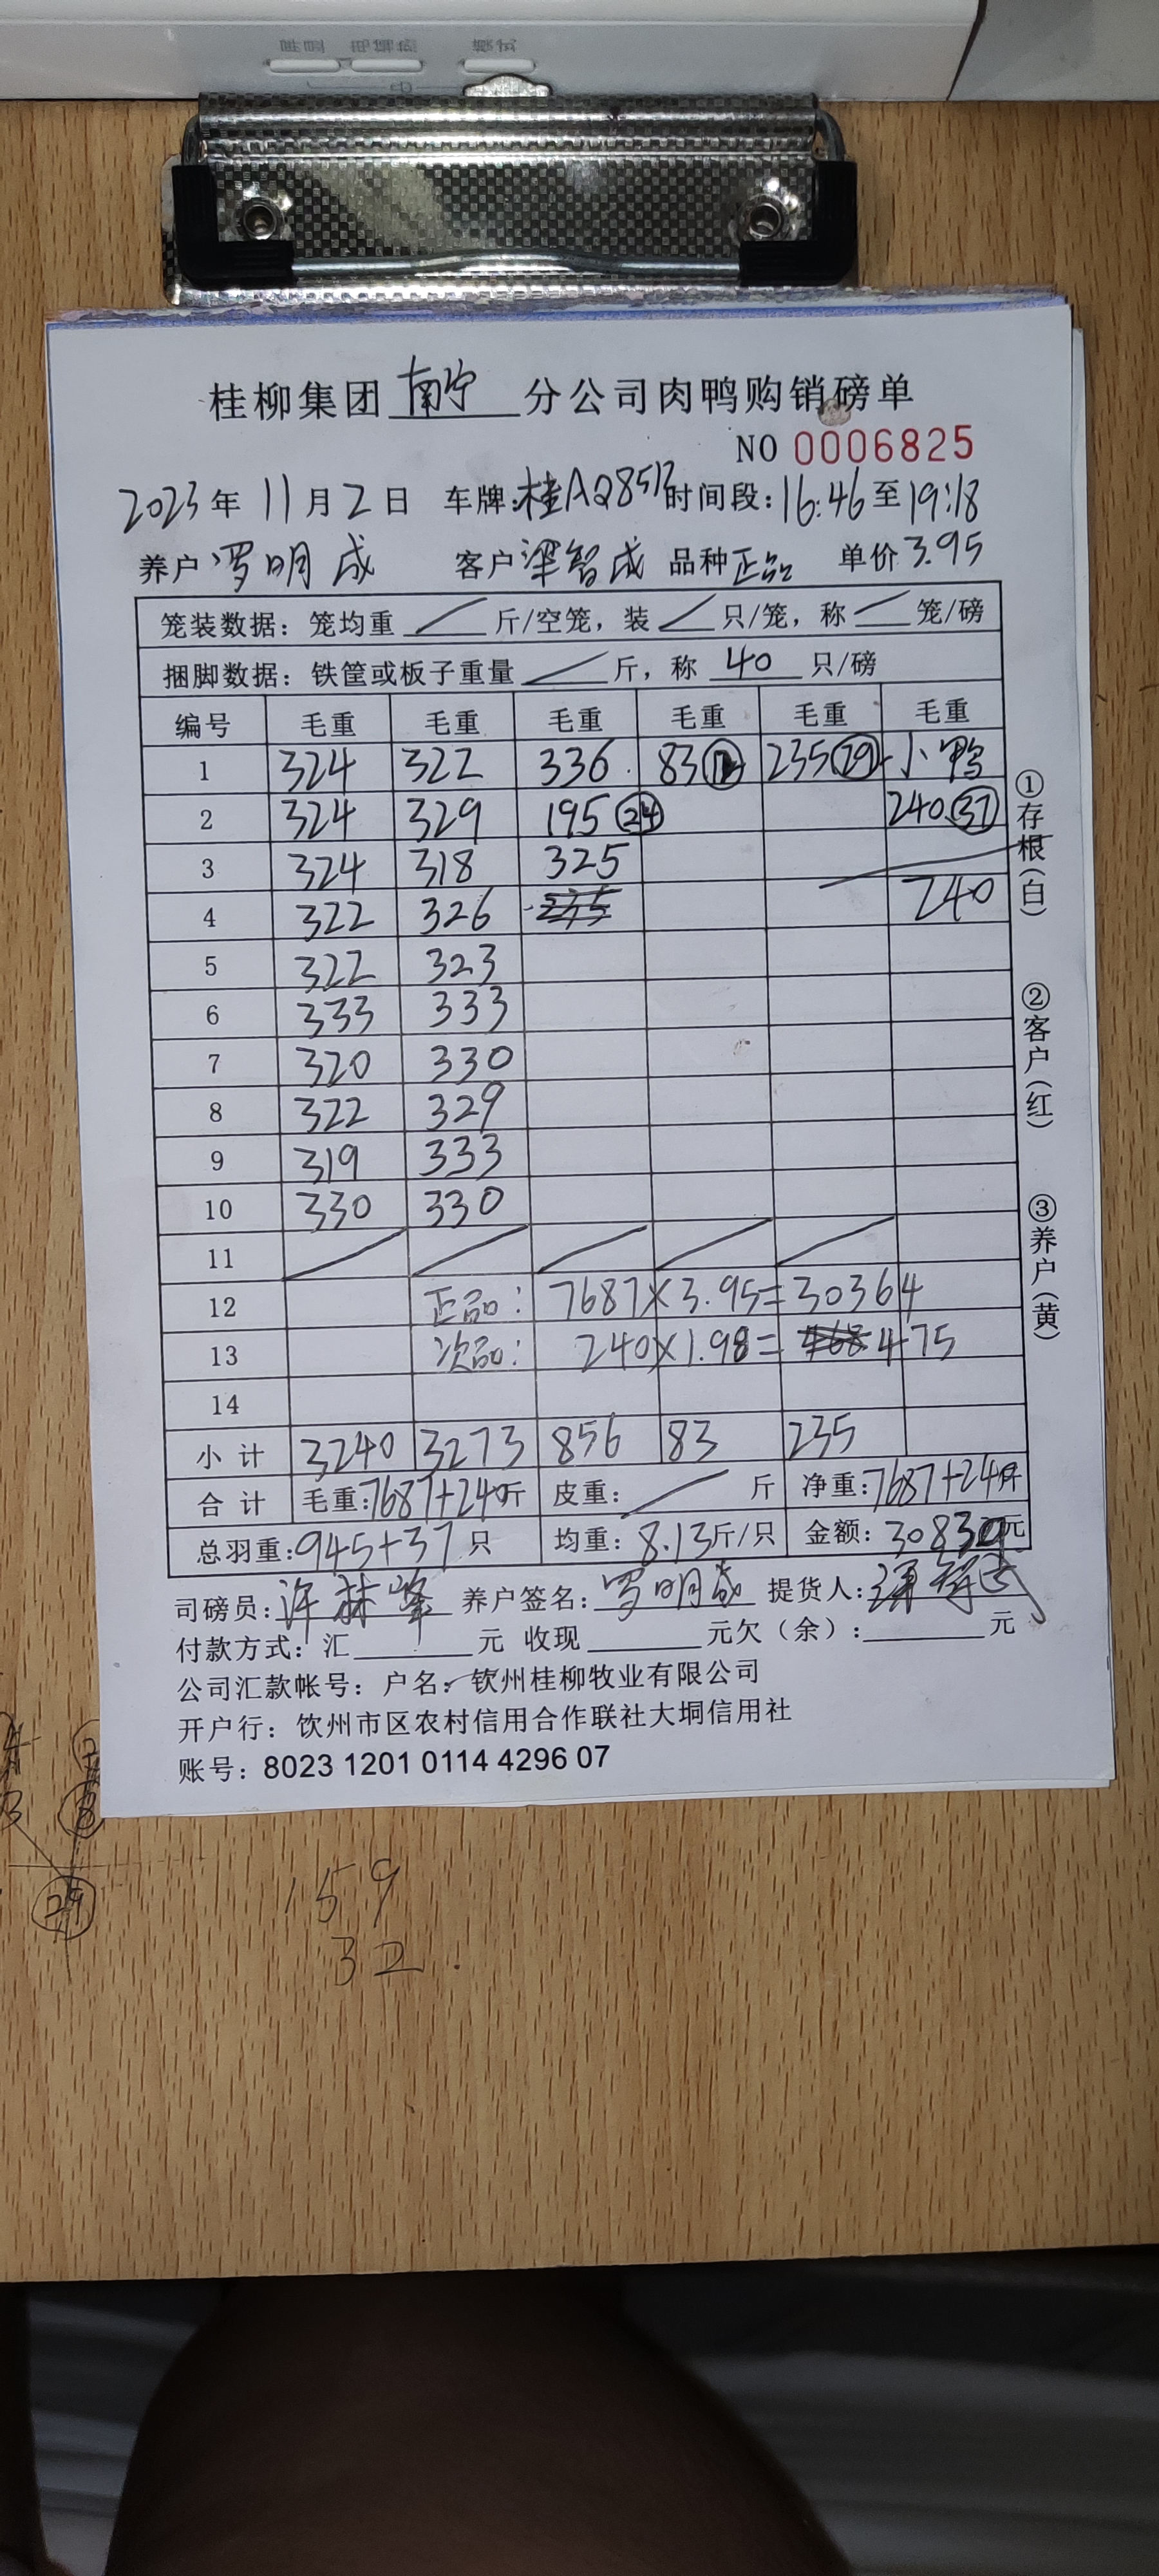 桂柳集团 南宁 分公司肉鸭购销磅单
NO 0006825
2023年 11月 2日 车牌:桂AQ8513 时间段:16:46至19:18
养户 罗明成 客户 梁智成 品种 正品 单价 3.95
笼装数据:笼均重 / 斤/空笼,装 / 只/笼,称 / 笼/磅
捆脚数据:铁筐或板子重量 / 斤,称 40 只/磅
编号 毛重 毛重 毛重 毛重 毛重 毛重
1 324 322 336 83 235 29 小鸭
2 324 329 195 24 240 37
3 324 318 325
4 322 326 240
5 322 323
6 333 333
7 320 330
8 322 329
9 319 333
10 330 330
11
12 正品: 7687×3.95=30364
13 次品: 240×1.98= 475
14
小计 3240 3273 856 83 235
合计 毛重:7687+240斤 皮重: / 斤 净重:7687+240斤
总羽重:945+37只 均重:8.13斤/只 金额:30839元
司磅员:许林峰 养户签名:罗明成 提货人:
付款方式:汇 元 收现 元欠(余): 元
公司汇款帐号:户名:钦州桂柳牧业有限公司
开户行:饮州市区农村信用合作联社大垌信用社
账号:8023 1201 0114 4296 07
①存根(白)
②客户(红)
③养户(黄)
29
159
32.